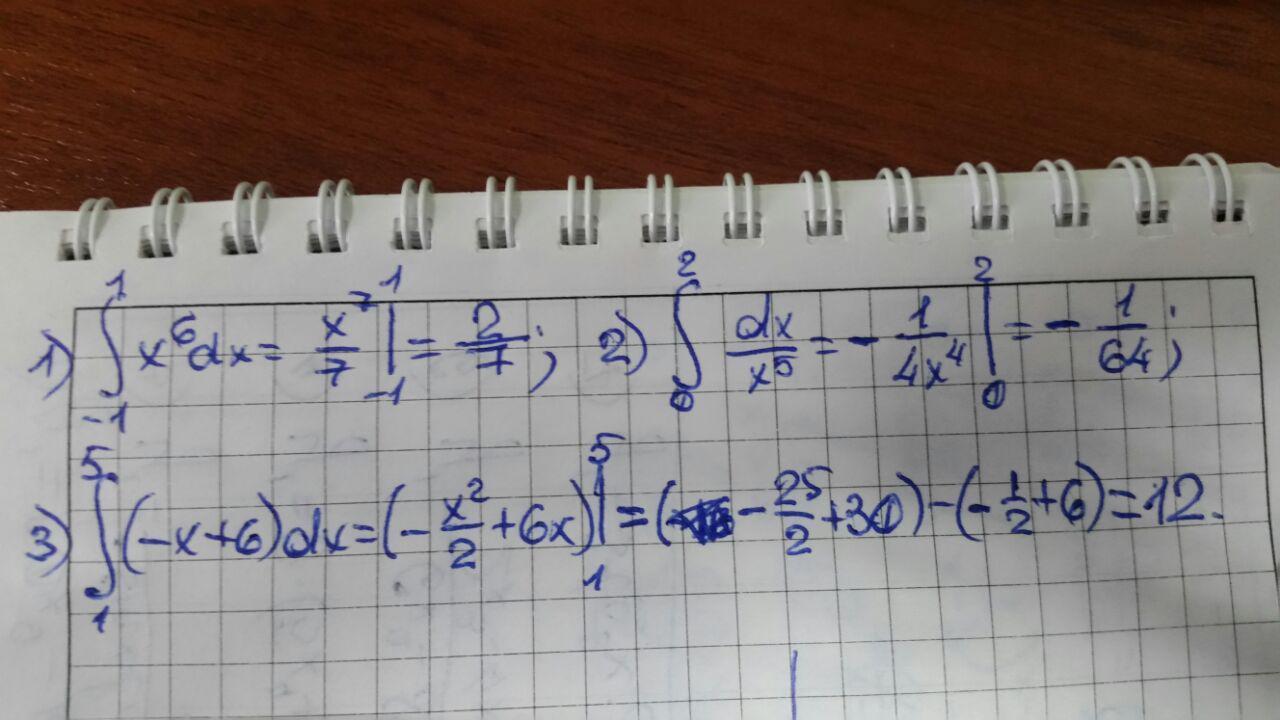 1) ∫_{-1}^{1} x^6 dx = x^7/7 |_{-1}^{1} = 2/7; 2) ∫_{0}^{2} dx/x^5 = - 1/(4x^4) |_{0}^{2} = - 1/64;
3) ∫_{1}^{5} (-x+6)dx = (- x^2/2 + 6x) |_{1}^{5} = (- 25/2 + 30) - (- 1/2 + 6) = 12.